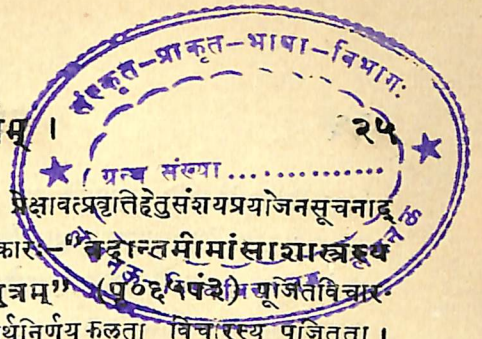 संस्कृत-प्राकृत-भाषा-विभागः
म् ।
२५
ग्रन्थ संख्या ..............
प्रेक्षावत्प्रवृत्तिहेतुसंशयप्रयोजनसूचनाद्
कारः-"वेदान्तमीमांसाशास्त्रस्य
सूत्रम्" (पृ० पं३) पूजितविचार-
र्थनिर्णयफलता विचारस्य पूजितता ।